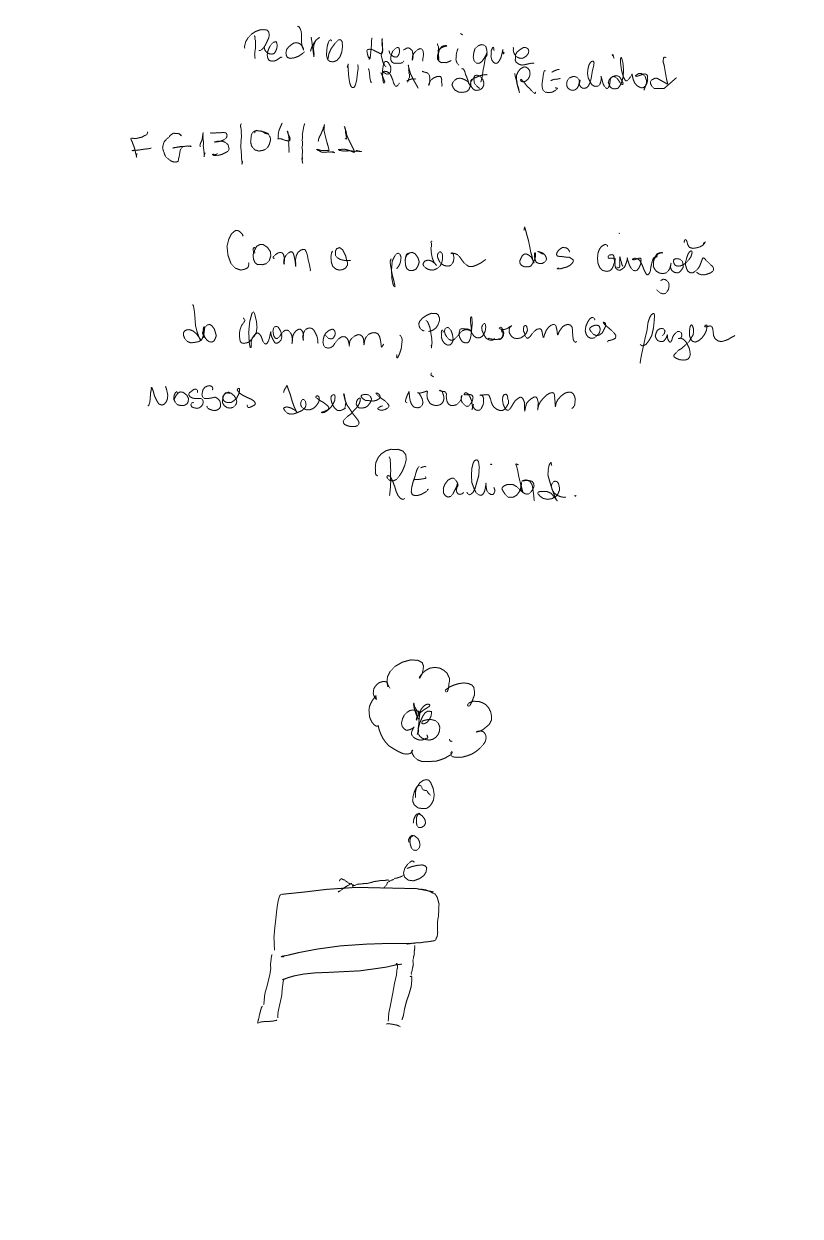 Pedro Henrique
VIRAndo REalidad
FG13/04/11
Com o poder dos criações
do homem, Poderemos fazer
Nossos desejos virarem
REalidade.